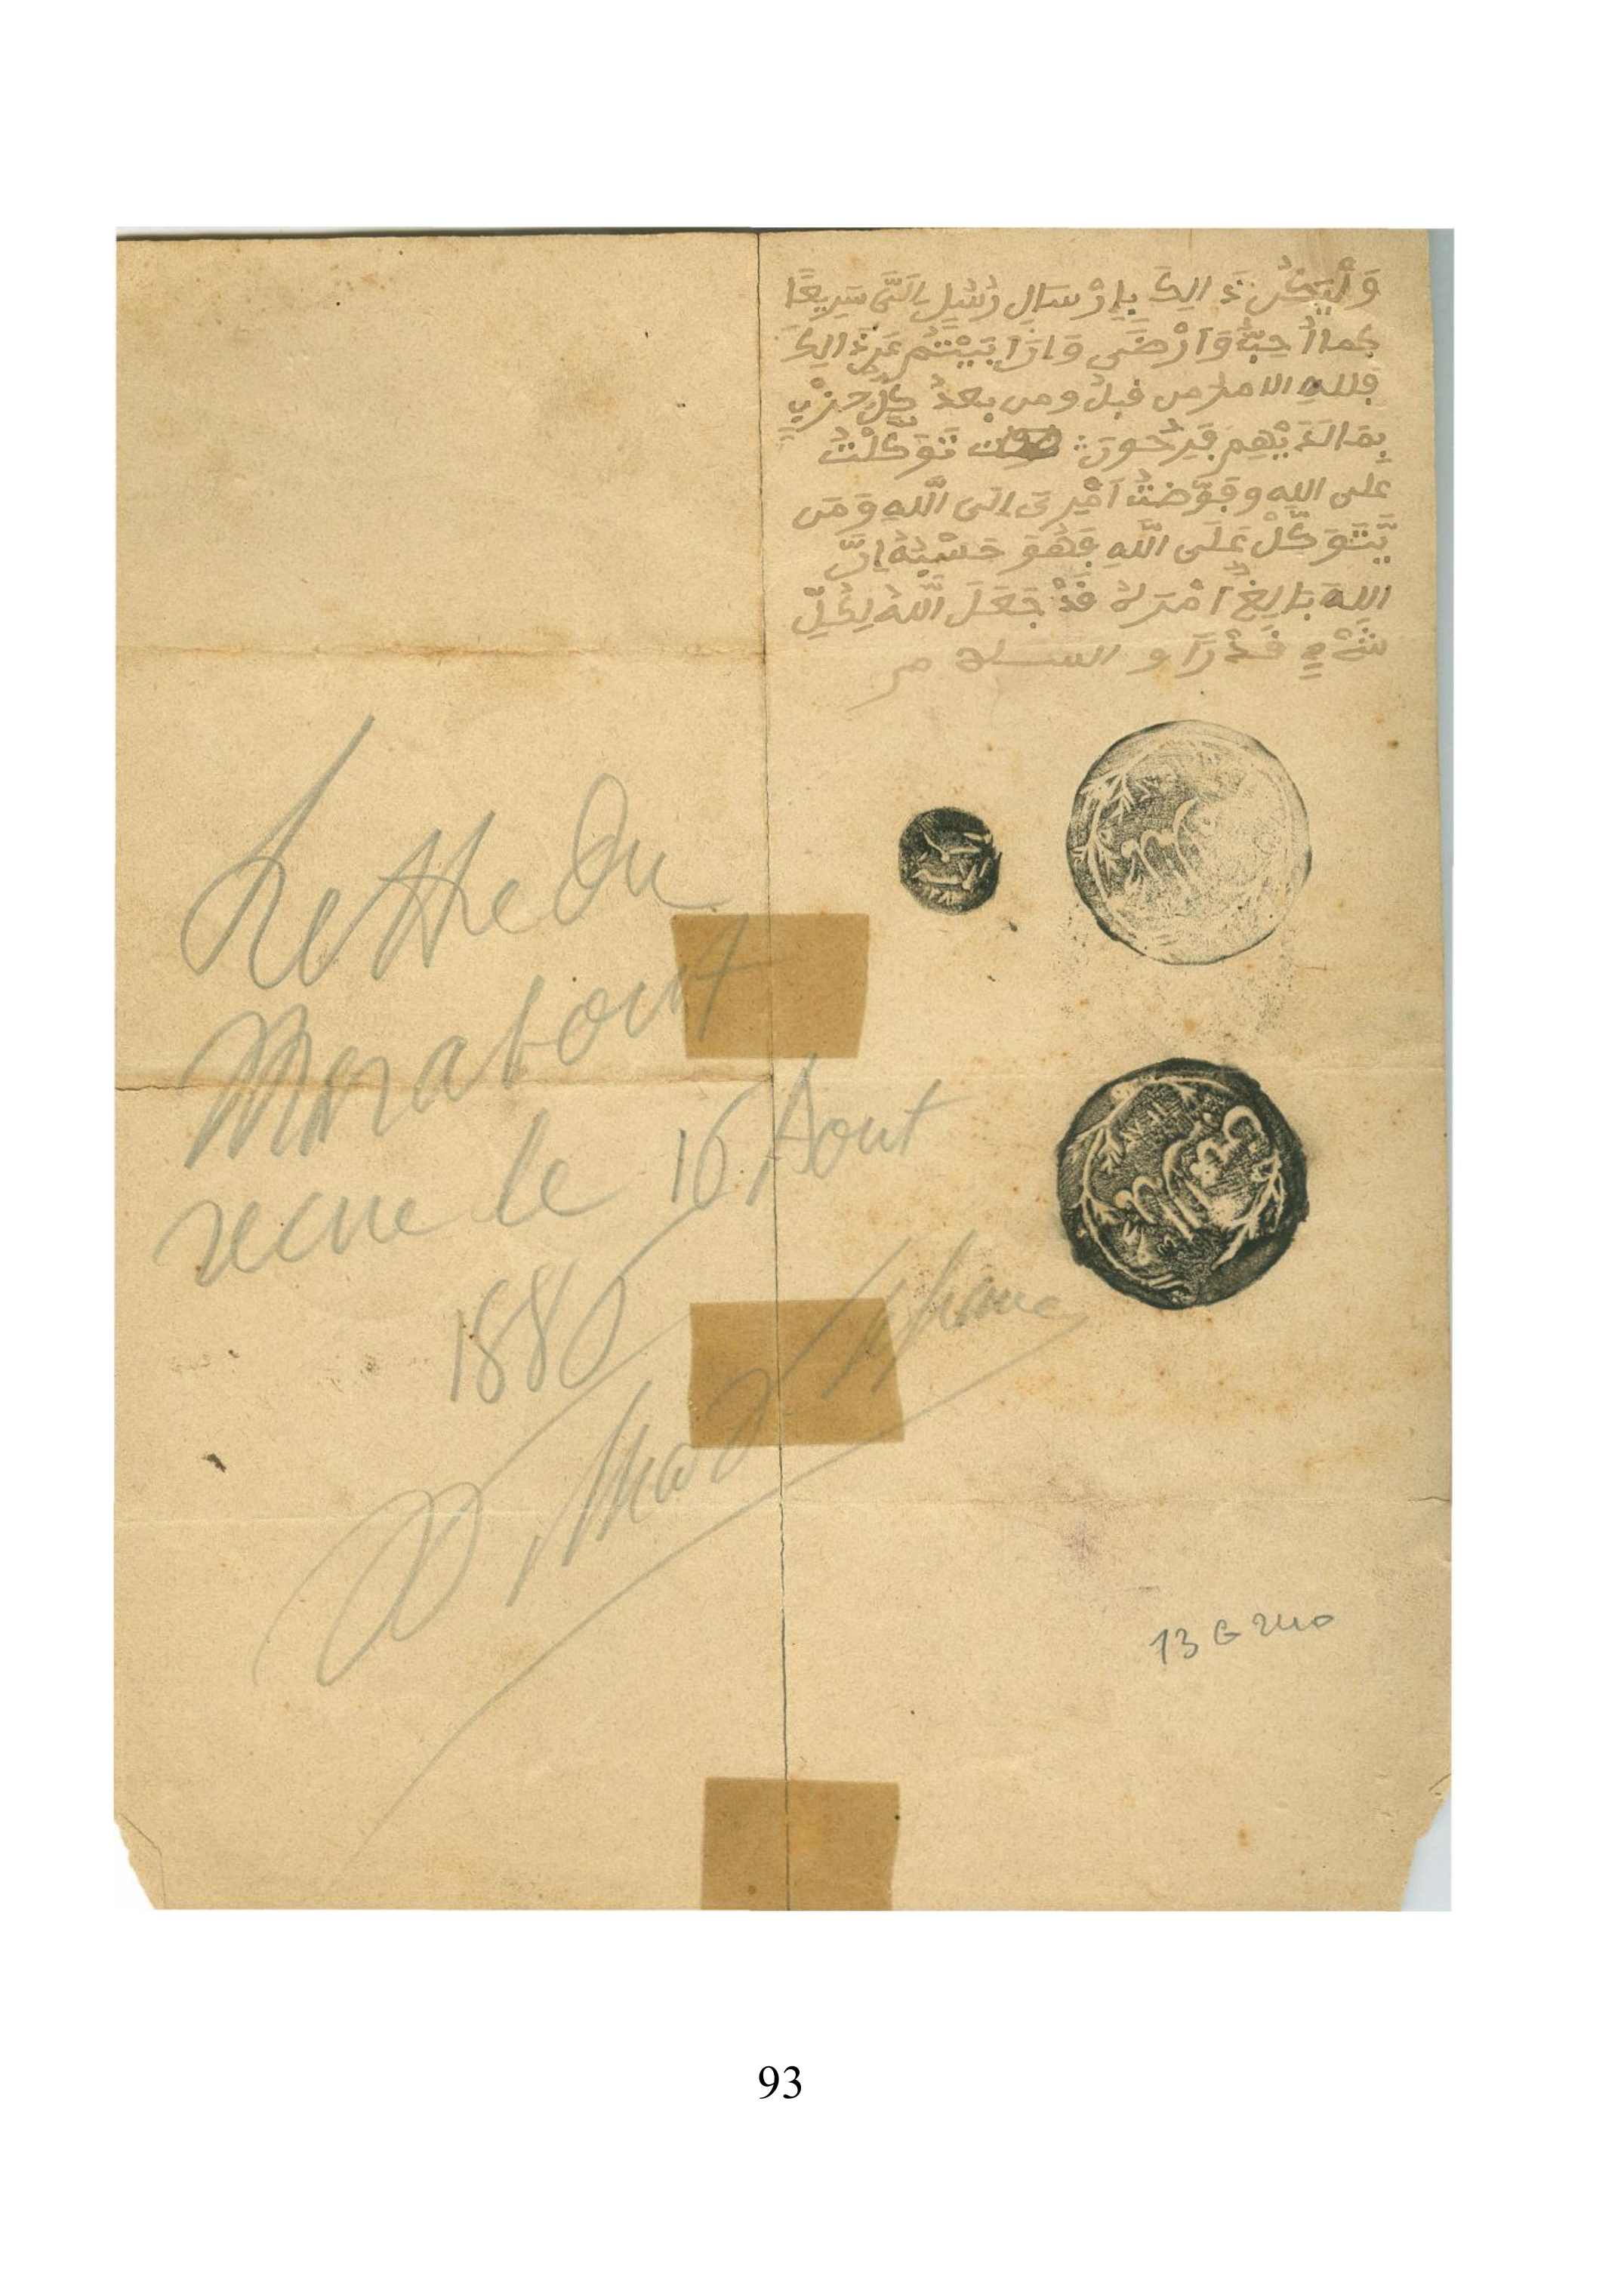 وَلْيَكُنْ ذَالِكَ بِاِرْسَالِ رُسُلٍ اِلَيَّ سَرِيعًا
كما اُحِبُّ وَاَرْضَى وَاِذَا اَبَيْتُمْ عَن ذَالِكَ
فلله الامر من قبل ومن بعدُ كُلُّ حِزْبٍ
بِمَا لَدَيْهِمْ فَرِحُونَ تَوَكَّلْتُ
على الله وفَوَّضْتُ اَمْرِى اِلَى اللَّهِ وَمَن
يَّتَوَكَّلْ عَلَى اللَّهِ فَهُوَ حَسْبُهُ اِنَّ
اللهَ بَالِغُ اَمْرِهِ قَدْ جَعَلَ اللَّهُ لِكُلِّ
شَيْءٍ قَدْرًا و السلام
Lettre du
Marabout
recue le 16 Aout
188
13 G 240
93